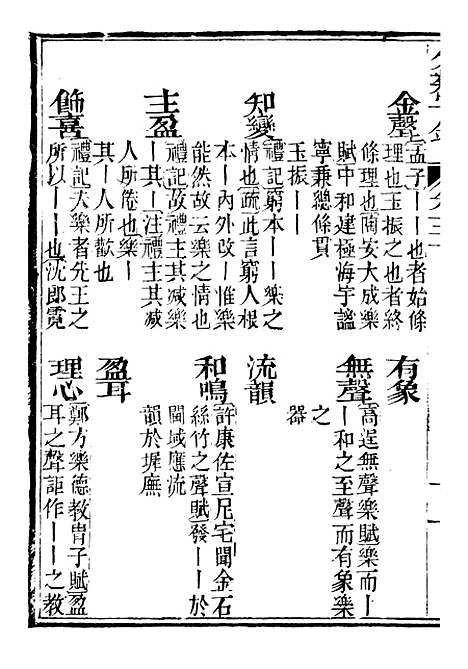 金聲 孟子丨丨也者始條
理也玉振之也者終
條理也陶安大成樂
賦中和建極海宇謐
寧兼總條貫
玉振丨丨
有象
無聲 高逞無聲樂賦樂而丨
丨和之至聲而有象樂
之
器
知變 禮記窮本丨丨樂之
情也疏此言窮人根
本丨內外改丨惟樂
能然故云樂之情也
流韻
和鳴 許康佐宣尼宅聞金石
絲竹之聲賦發丨丨於
閫域應流
韻於墀廡
主盈 禮記故禮主其減樂
丨其丨注禮主其減
人所倦也樂丨
其丨人所歡也
盈耳
飾喜 禮記夫樂者先王之
所以丨丨也沈郎霓
理心 鄭方樂德教胄子賦盈
耳之聲詎作丨丨之教